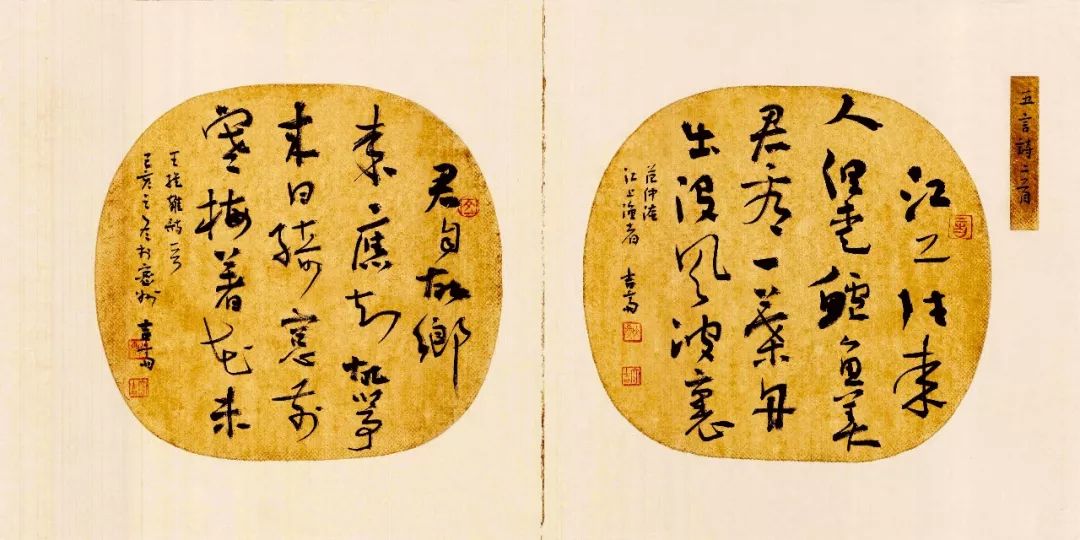 五言詩二首
江上往來
人但愛鱸魚美
君看一葉舟
出沒風波裏
范仲淹
江上漁者
君自故鄉
來應知故鄉事
來日綺窗前
寒梅著花未
王維雜詩一首
己亥之冬於